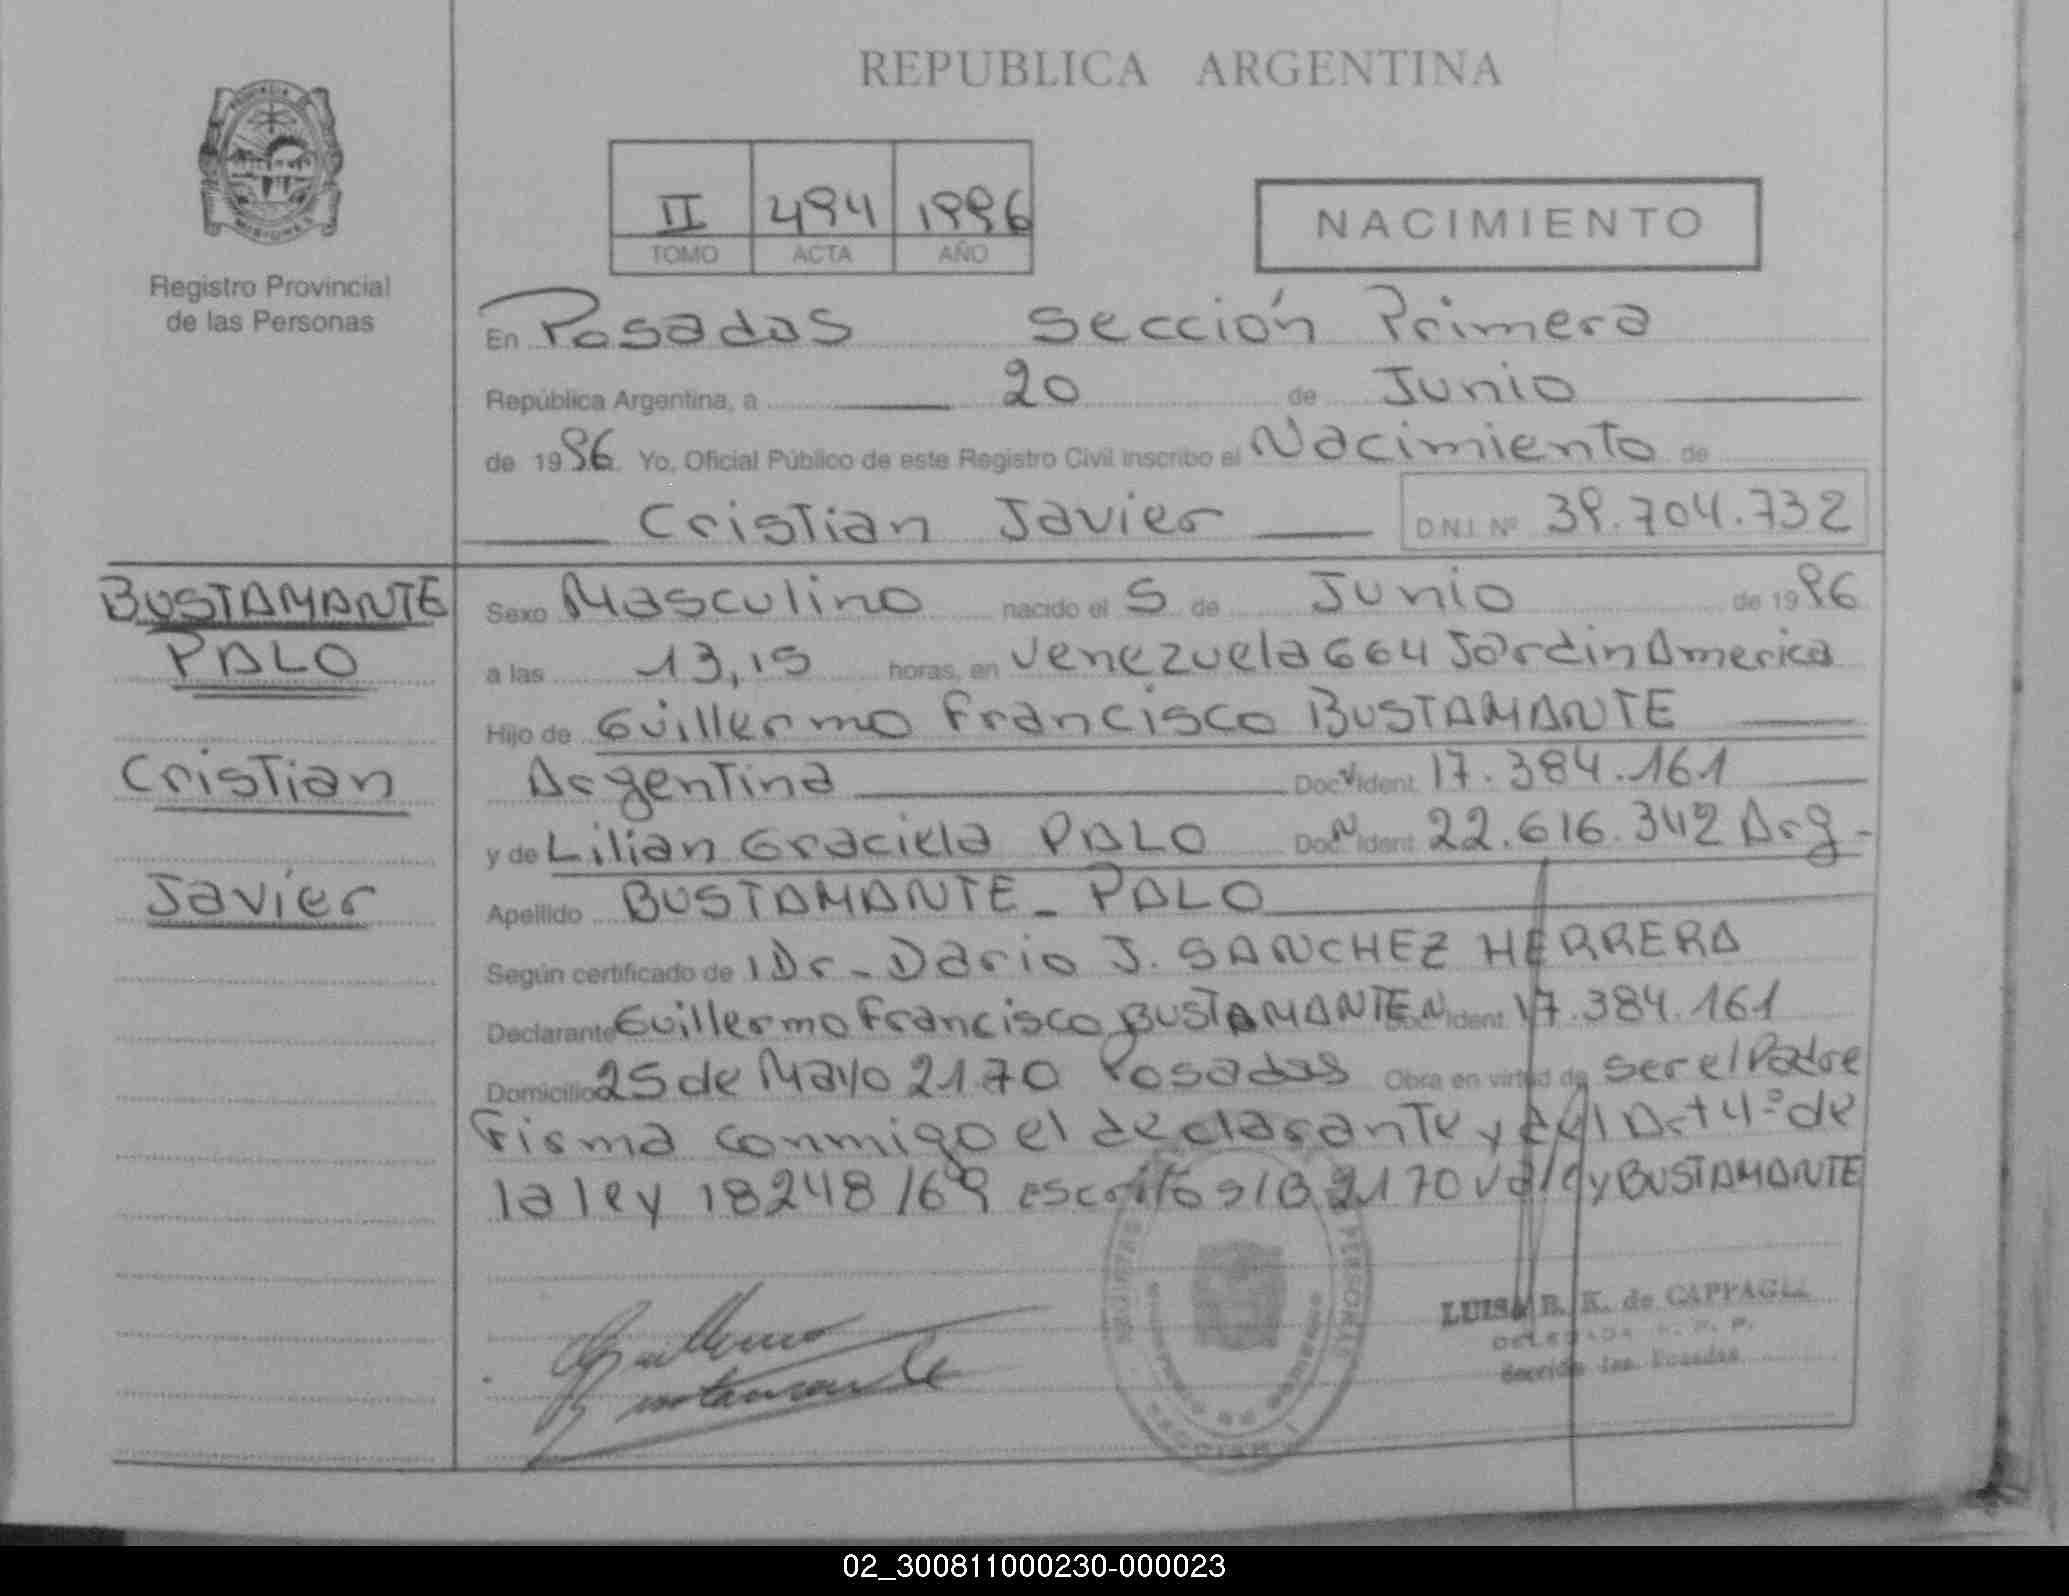 REPUBLICA ARGENTINA
II 494 1996
TOMO ACTA AÑO
NACIMIENTO
MISIONES
Registro Provincial
de las Personas
En Posadas Sección Primera
República Argentina, a 20 de Junio
de 1996 Yo, Oficial Público de este Registro Civil inscribo el Nacimiento de
Cristian Javier D.N.I. Nº 39.704.732
BUSTAMANTE
PALO
Cristian
Javier
Sexo Masculino nacido el 5 de Junio de 1996
a las 13,15 horas, en Venezuela 664 Jardin America
Hijo de Guillermo Francisco BUSTAMANTE
Argentina Doc. Ident. 17.384.161
y de Lilian Graciela PALO Doc. N Ident. 22.616.342 Arg-
Apellido BUSTAMANTE - PALO
Según certificado de Dr. Dario J. SANCHEZ HERRERA
Declarante Guillermo Francisco BUSTAMANTE Doc. N Ident. 17.384.161
Domicilio 25 de Mayo 2170 Posadas Obra en virtud de ser el Padre
Firma conmigo el declarante y Art 4º de
la ley 18248/69 escrito s/B 2170 vale y BUSTAMANTE
Guillermo
Bustamante
LUISA B. K. de CAPPAGLI
DELEGADA R. P. P.
Sección 1ra. Posadas
02_300811000230-000023